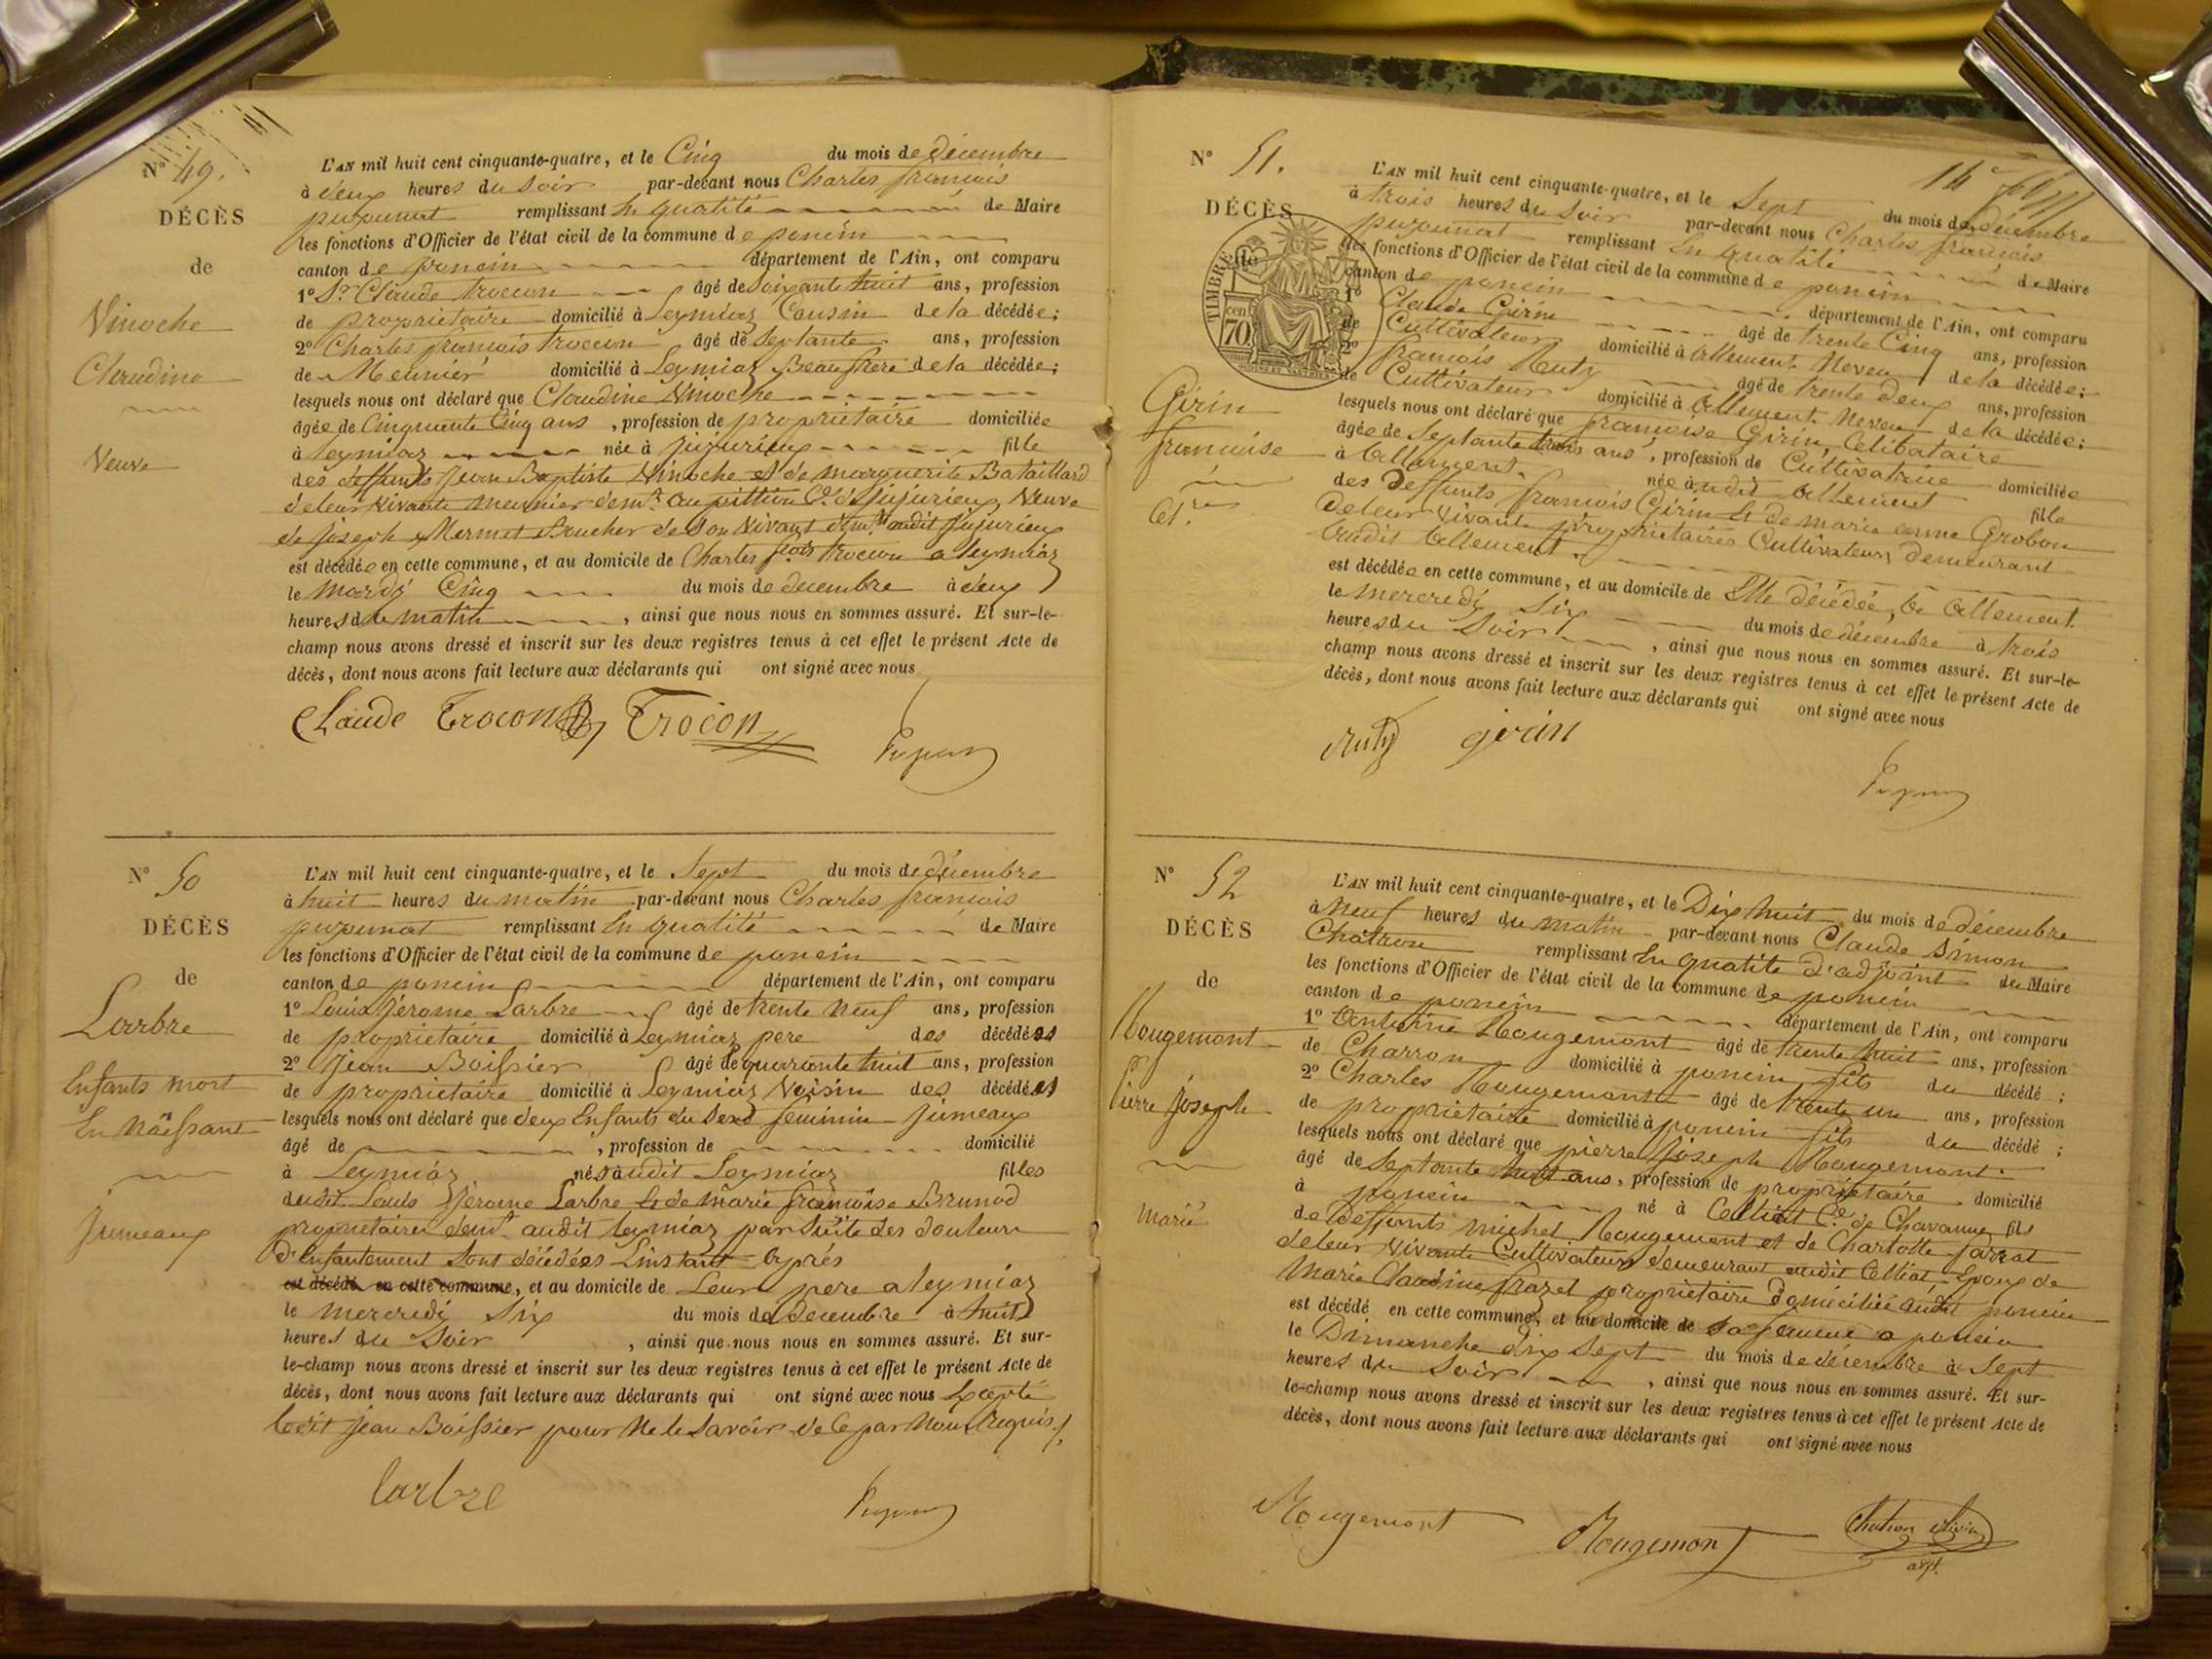 N° 49.
DÉCÈS
de
Vinoche
Claudine
Veuve
L'AN mil huit cent cinquante-quatre, et le Cinq du mois de décembre
à deux heures du Soir par-devant nous Charles françois
pugunat remplissant En qualité de Maire
les fonctions d'Officier de l'état civil de la commune de poncin
canton de poncin département de l'Ain, ont comparu
1° Sr Claude trocon âgé de Soixante huit ans, profession
de propriétaire domicilié à Leymiaz Cousin de la décédée;
2° Charles françois trocon âgé de Septante ans, profession
de Meunier domicilié à Leymiaz Beaufrere de la décédée;
lesquels nous ont déclaré que Claudine Vinoche
âgée de Cinquante Cinq ans, profession de propriétaire domiciliée
à Leymiaz née à jujurieux fille
des deffunts Jean Baptiste Vinoche et de marguerite Bataillard
de leur vivant meunier demt. au pittion Ce. de jujurieux, Veuve
de joseph Mermet Boucher de Son Vivant demt. audit jujurieux
est décédée en cette commune, et au domicile de Charles fçois trocon a leymiaz
le mardi Cinq du mois de decembre à deux
heures du matin, ainsi que nous nous en sommes assuré. Et sur-le-
champ nous avons dressé et inscrit sur les deux registres tenus à cet effet le présent Acte de
décès, dont nous avons fait lecture aux déclarants qui ont signé avec nous
Claude Trocon Trocon
N° 50
DÉCÈS
de
Larbre
Enfants mort
En Naissant
Jumeaux
L'AN mil huit cent cinquante-quatre, et le Sept du mois de décembre
à huit heures du matin par-devant nous Charles françois
pugunat remplissant En qualité de Maire
les fonctions d'Officier de l'état civil de la commune de poncin
canton de poncin département de l'Ain, ont comparu
1° Louis Jérome Larbre âgé de trente neuf ans, profession
de propriétaire domicilié à Leymiaz pere des décédées
2° Jean Boissier âgé de quarante huit ans, profession
de propriétaire domicilié à Leymiaz Voisin des décédées
lesquels nous ont déclaré que deux Enfants du Sexe feminin Jumeaux
âgé de , profession de domicilié
à Leymiaz nés audit Leymiaz filles
dudit Louis Jérome Larbre et de marie françoise Brunod
propriétaires demt. audit leymiaz par Suite des douleurs
d'enfantement Sont décédées L'instant après
est décédé en cette commune, et au domicile de Leur pere a leymiaz
le mercredi Six du mois de Decembre à huit
heures du Soir, ainsi que nous nous en sommes assuré. Et sur-
le-champ nous avons dressé et inscrit sur les deux registres tenus à cet effet le présent Acte de
décès, dont nous avons fait lecture aux déclarants qui ont signé avec nous Excepté
ledit Jean Boissier pour Ne le Savoir de Ce par Nous Requis.
larbre
N° 51.
DÉCÈS
TIMBRE
70
Girin
françoise
L'AN mil huit cent cinquante-quatre, et le Sept du mois de décembre
à trois heures du Soir par-devant nous Charles françois
pugunat remplissant En qualité de Maire
les fonctions d'Officier de l'état civil de la commune de poncin
canton de poncin département de l'Ain, ont comparu
1° Claude Girin âgé de trente Cinq ans, profession
de Cultivateur domicilié à allement Neveu de la décédée;
2° françois Ruty âgé de trente deux ans, profession
de Cultivateur domicilié à allement Neveu de la décédée;
lesquels nous ont déclaré que françoise Girin, Celibataire
âgée de Septante trois ans, profession de Cultivatrice domiciliée
à allement née audit allement fille
des Deffunts françois Girin et de marie anne Grobon
de leur Vivant propriétaires Cultivateurs demeurant
audit allement.
est décédée en cette commune, et au domicile de Elle décédée, a allement.
le mercredi Six du mois de décembre à trois
heures du Soir, ainsi que nous nous en sommes assuré. Et sur-le-
champ nous avons dressé et inscrit sur les deux registres tenus à cet effet le présent Acte de
décès, dont nous avons fait lecture aux déclarants qui ont signé avec nous
Ruty girin
N° 52
DÉCÈS
de
Rougemont
Pierre Joseph
Marié
L'AN mil huit cent cinquante-quatre, et le Dix huit du mois de décembre
à Neuf heures du matin par-devant nous Claude Simon
Chatron remplissant En qualité d'adjoint de Maire
les fonctions d'Officier de l'état civil de la commune de poncin
canton de poncin département de l'Ain, ont comparu
1° Antoine Rougemont âgé de trente huit ans, profession
de Charron domicilié à poncin fils du décédé;
2° Charles Rougemont âgé de trente un ans, profession
de propriétaire domicilié à poncin fils du décédé;
lesquels nous ont déclaré que pierre Joseph Rougemont.
âgé de Septante huit ans, profession de propriétaire domicilié
à poncin né à Celliat Ce. de Chavanne fils
de Deffunts michel Rougemont et de Charlotte Jarrat
de leur Vivant Cultivateurs demeurant audit Celliat, Epoux de
Marie Claudine frazet propriétaire domiciliée audit poncin
est décédé en cette commune, et au domicile de Sa femme a poncin
le Dimanche dix Sept du mois de décembre à Sept
heures du Soir, ainsi que nous nous en sommes assuré. Et sur-
le-champ nous avons dressé et inscrit sur les deux registres tenus à cet effet le présent Acte de
décès, dont nous avons fait lecture aux déclarants qui ont signé avec nous
Rougemont Rougemont Chatron
adjt.